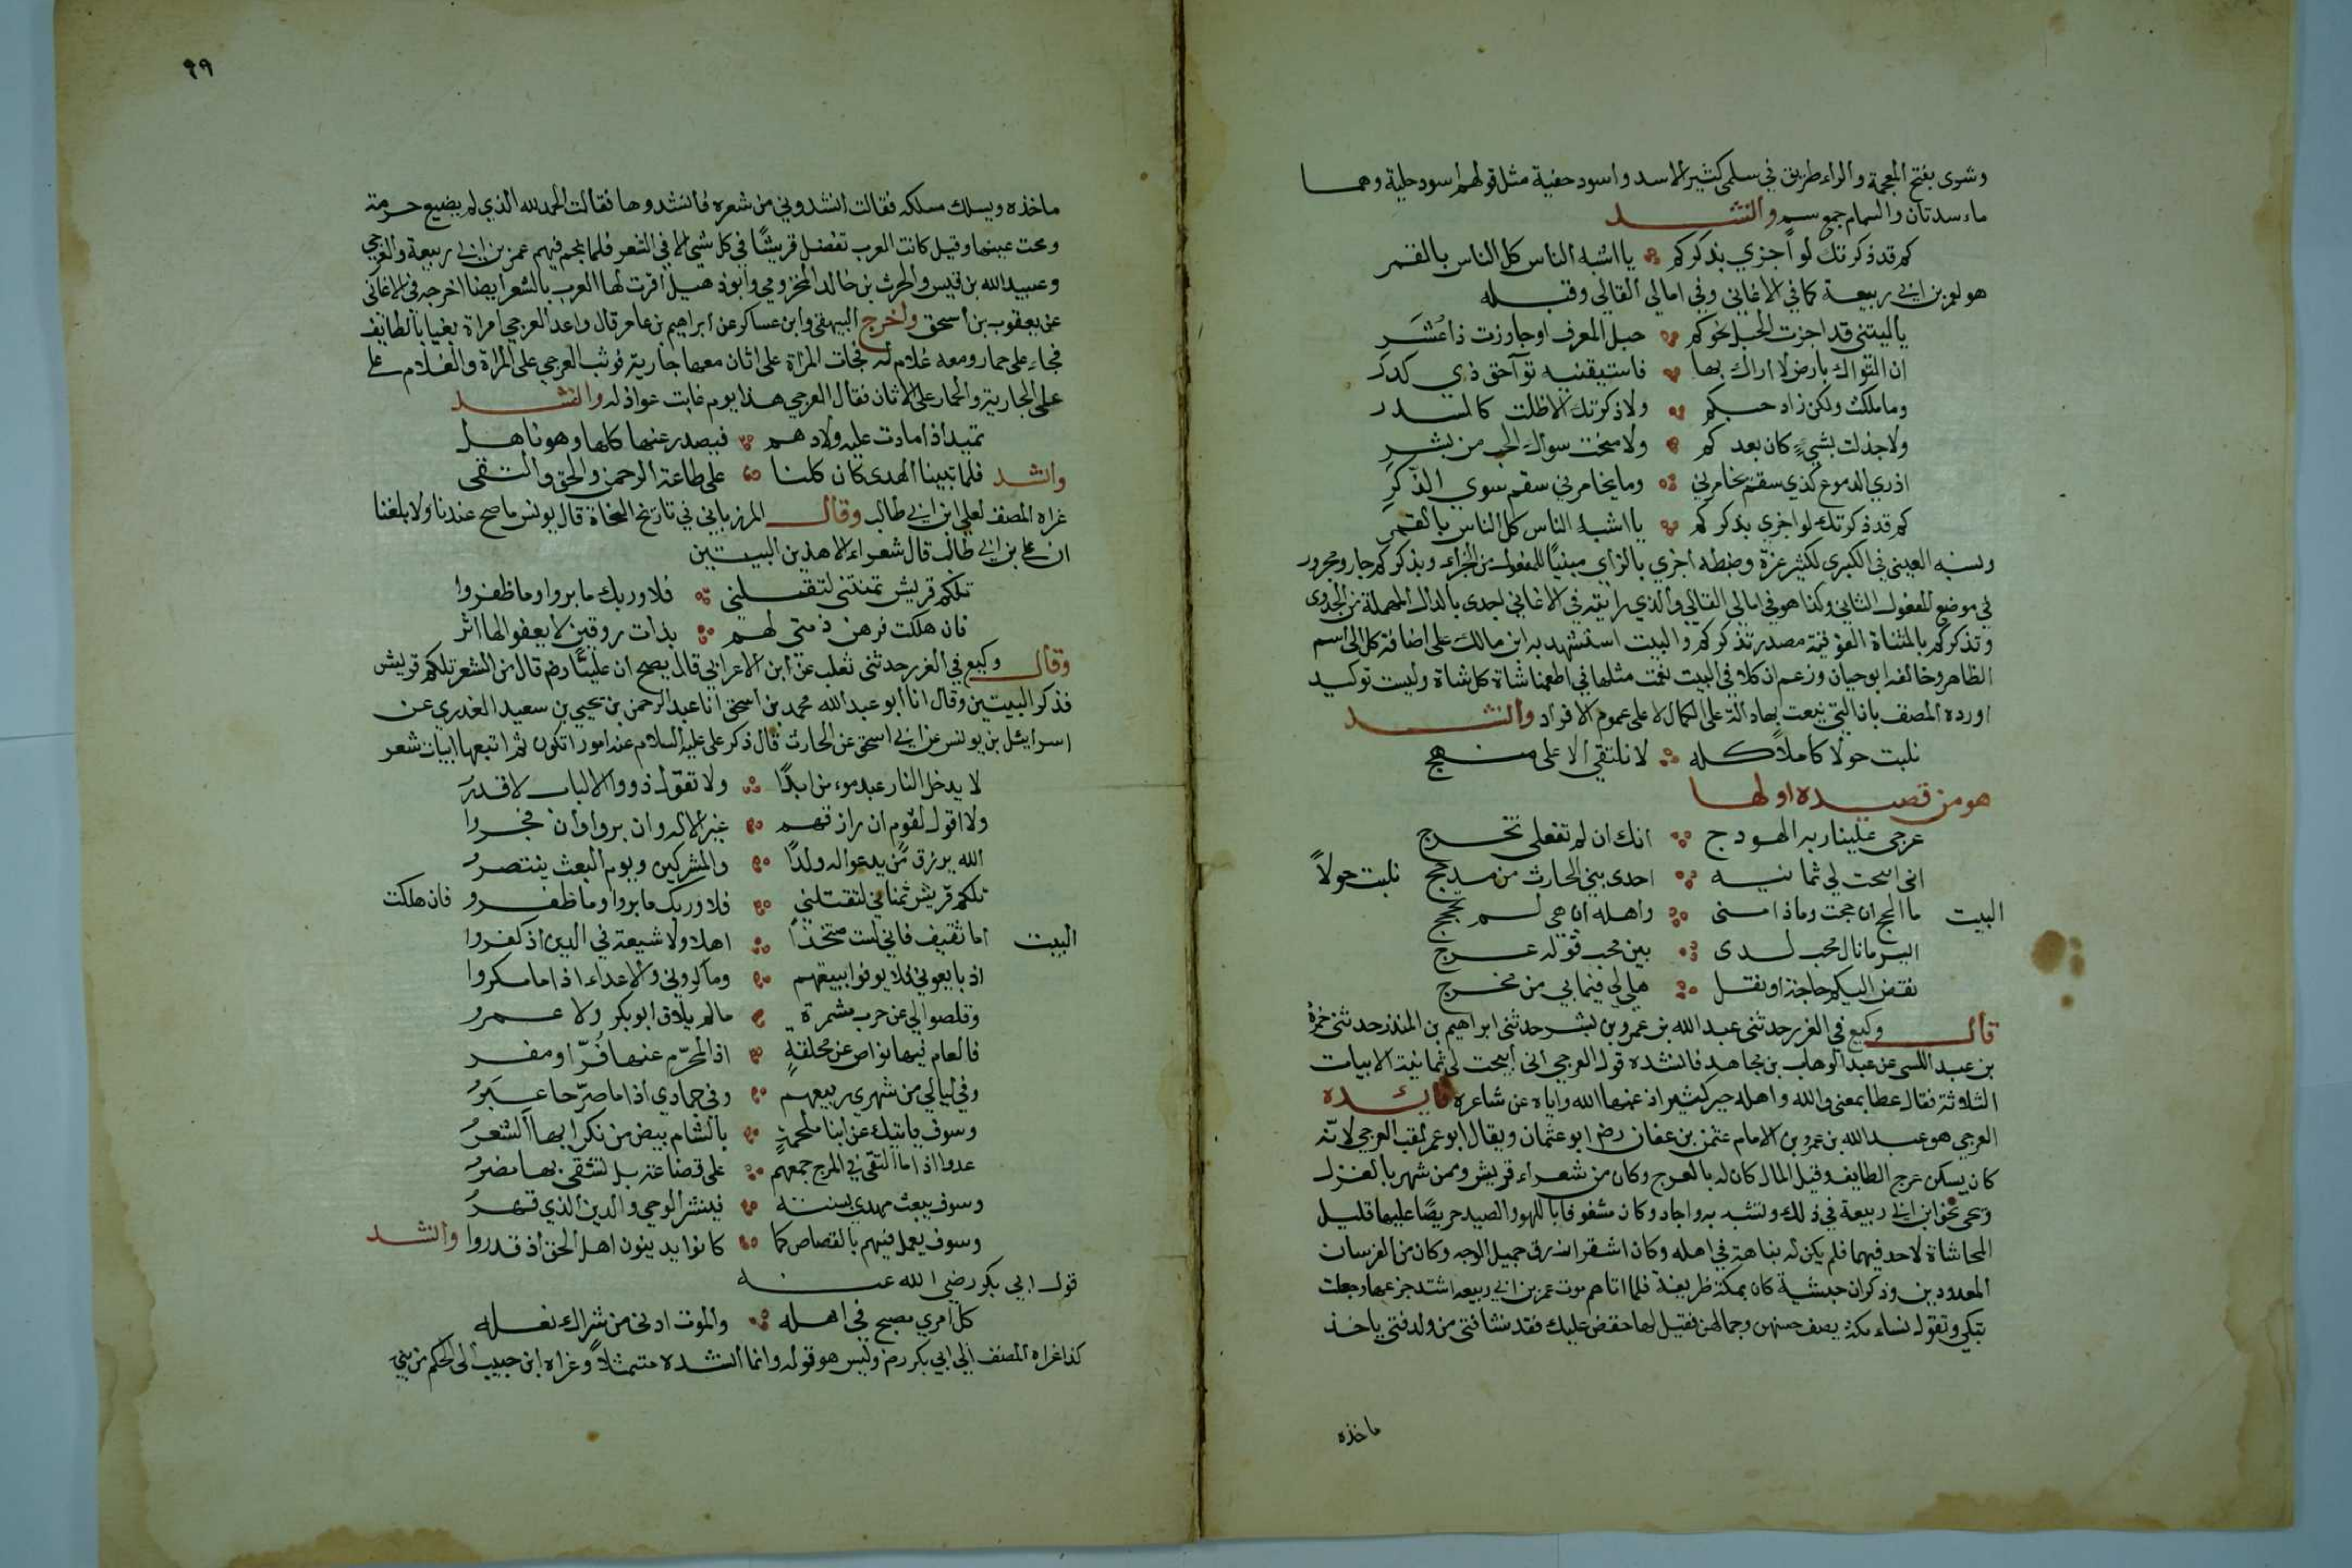 وشرى بفتح المعجمة والراء طريق في سلمى كثير الاسد واسود حفية مثل قولهم اسود حلية وهما
ماء سدتان والسمام جمع سم وانشد
كم قد ذكرتك لو اجزي بذكركم يا اشبه الناس كل الناس بالقمر
هو لعمر بن ابي ربيعة كما في الاغاني وفي امالي القالي وقبله
ياليتني قد اجزت الحبل نحوكم حبل المعرف او جاوزت ذا عُشَر
ان الثواك بارض لا اراك بها فاستيقنيه ثوآ حق ذي كدر
وما مللت ولكن زاد حبكم ولا ذكرتك الا ظلت كالسدر
ولا جذلت بشيءٍ كان بعدكم ولا منحت سواك الحب من بشر
اذري الدموع كذي سقم يخامرني وما يخامرني سقم سوي الذكرِ
كم قد ذكرتك لو اجزى بذكركم يا اشبه الناس كل الناس بالقمر
ونسبه العيني في الكبرى لكثير عزة وضبطه اجزي بالزاي مبنيًا للمفعول من الجزاء وبذكركم جار ومجرور
في موضع المفعول الثاني وكذا هو في امالي القالي والذي رايته في الاغاني اجدى بالدال المهملة من الجدوى
وتذكركم بالمثناة الفوقية مصدر تذكركم والبيت استشهد به ابن مالك على اضافة كل الى اسم
الظاهر وخالفه ابو حيان وزعم ان كلا في البيت نعت مثلها في اطعمنا شاة كل شاة وليست توكيد
اورده المصنف بان التي ينعت بها دالة على الكمال لا على عموم الافراد وانشد
نلبت حولا كاملاً كله لا نلتقي الا على منهج
هو من قصيدة اولها
عوجي علينا ربه الهودج انك ان لم تفعلي تخرج
اني اتيحت لي ثمانيه احدى بني الحارث من مدحج نلبت حولاً
البيت ما الحج ان حجت وماذا منى واهله ان هي لم تحجج
ايسر ما نال محب لدى بين محب قوله عرج
نقض اليكم حاجة او نقل هل لي فيما بي من مخرج
قال وكيع في الغرر حدثنى عبد الله بن عمرو بن بشر حدثنى ابراهيم بن المنذر حدثنى حمزة
بن عبد اللسى عن عبد الوهاب بن مجاهد فانشده قول العرجي اني اتيحت لي ثمانية الابيات
الثلاثة فقال عطا بمعنى والله واهله خير كثير اذ عنها الله واياه عن شاعره فايده
العرجي هو عبد الله بن عمرو بن الامام عثمن بن عفان رضي ابو عثمان ويقال ابو عمر لقب العرجي لانّه
كان يسكن عرج الطايف وقيل المال كان له بالعرج وكان من شعراء قريش وممن شهر بالغزل
ونحى نحو ابن ابي ربيعة في ذلك وتشبه به واجاد وكان مشغوفا باللهو والصيد حريصًا عليهما قليل
المحاشاة لاحد فيهما فلم يكن له بناهة في اهله وكان اشقر ازرق جميل الوجه وكان من الفرسان
المعدودين وذكر ان حبشية كان بمكة ظريفة فلما اتاهم موت عمر بن ابي ربيعه اشتد جزعها وجعلت
تبكي وتقول نساء مكة يصف حسنهن وجمالهن فقيل لها خفض عليك فقد نشا فتى من ولد فتى ياخذ
ماخذه
٩٩
ماخذه ويسلك مسلكه فقالت انشدوني من شعره فانشدوها فقالت الحمد لله الذي لم يضيع حرمته
ومحت عينها وقيل كانت العرب تفضل قريشًا في كل شي الا في الشعر فلما نجم فيهم عمر بن ابي ربيعة والعرجي
وعبيد الله بن قيس والحرث بن خالد المخزومي وابو ذهبل اقرت لها العرب بالشعر ايضا اخرجه في الاغاني
عن يعقوب بن اسحق واخرج البيهقى وابن عساكر عن ابراهيم بن عامر قال واعد العرجي امراة بغيا بالطايف
فجاء على حمار ومعه غلام له فجات المراة على اتان معها جارية فوثب العرجي على المراة والغلام على
على الجارية والحمار على الاتان فقال العرجي هذا يوم غابت عواذله وانشد
تميد اذا مادت عليه ولادهم فيصدر عنها كلها وهو ناهل
وانشد فلما تبينا الهدى كان كلنا على طاعة الرحمن والحق والتقى
غراه المصنف لعلي ابن ابي طالب وقال المرزباني في تاريخ النحاة قال يونس ما صح عندنا ولا بلغنا
ان علي بن ابي طالب قال شعراء الا هذين البيتين
تلكم قريش تمنتني لتقتلني فلا وربك ما بروا وما ظفروا
فان هلكت فرهن ذمتي لهم بذات روقين لا يعفو لها اثر
وقال وكيع في الغرر حدثنى ثعلب عن ابن الاعرابي قال يصح ان عليًا رضي قال من الشعر تلكم قريش
فذكر البيتين وقال انا ابو عبد الله محمد بن اسحق انا عبد الرحمن بن يحيي بن سعيد العذري عن
اسرائيل بن يونس عن ابي اسحق عن الحارث قال ذكر علي عليه السلام عنده امورا تكون ثم اتبعها ابيات شعر
لا يدخل النار عبد موءمن ابدًا ولا تقول ذووا الالباب لا قدر
ولا اقول لقوم ان رازقهم غير الاله وان بروا وان فجروا
الله يرزق مَن يدعو اله ولدًا والمشركين ويوم البعث ينتصر
تلكم قريش تمناني لتقتلني فلا وربك ما بروا وما ظفرو فان هلكت
البيت اما ثقيف فاني لست متخذاً اهلا ولا شيعة في الدين اذ كفروا
اذ بايعوني فلا يوفوا ببيعتهم وماكروني والاعداء اذا ما مكروا
وقلصوا لي عن حرب مشمرة ما لم يلاق ابو بكر ولا عمرو
فالعام فيها نواص عن محلقةٍ اذ المحرّم عنها فُرّ او مفر
وفي ليالي من شهري ربيعهم وفي جمادي اذا ما صرّحا عبَرُ
وسوف ياتيك عن ابنا ملحمةٍ بالشام بيض من نكرابها الشعرُ
عدوا اذا ما التقى في المرج جمعهم على قضاعة بل تشقى بها مضرُ
وسوف يبعث مهدي بسنته فينشر الوحي والدين الذي قهرُ
وسوف يعمل فيهم بالقصاص كما كانوا يدينون اهل الحق اذ قدروا وانشد
قول ابي بكر رضي الله عنه
كل امري مصبح في اهله والموت ادنى من شراك نعله
كذا غراه المصنف الي ابي بكر رضي وليس هو قوله وانما انشده متمثلاً وغراه ابن حبيب الى الحكم من بني